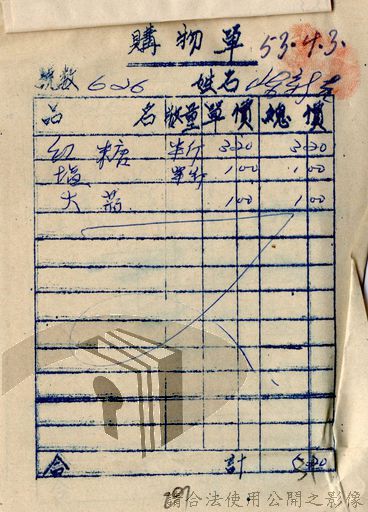 購物單 53.4.3.
號数 626 姓名
品名 數量 單價 總價
红糖 半斤 3.20 3.20
塩 半斤 1.00 1.00
大蒜 1.00 1.00
合計 5.20
請合法使用公開之影像